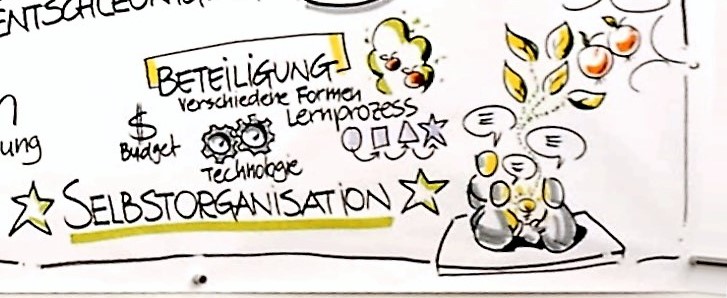 BETEILIGUNG
verschiedene Formen
Lernprozess
$
Budget
Technologie
ung
SELBSTORGANISATION